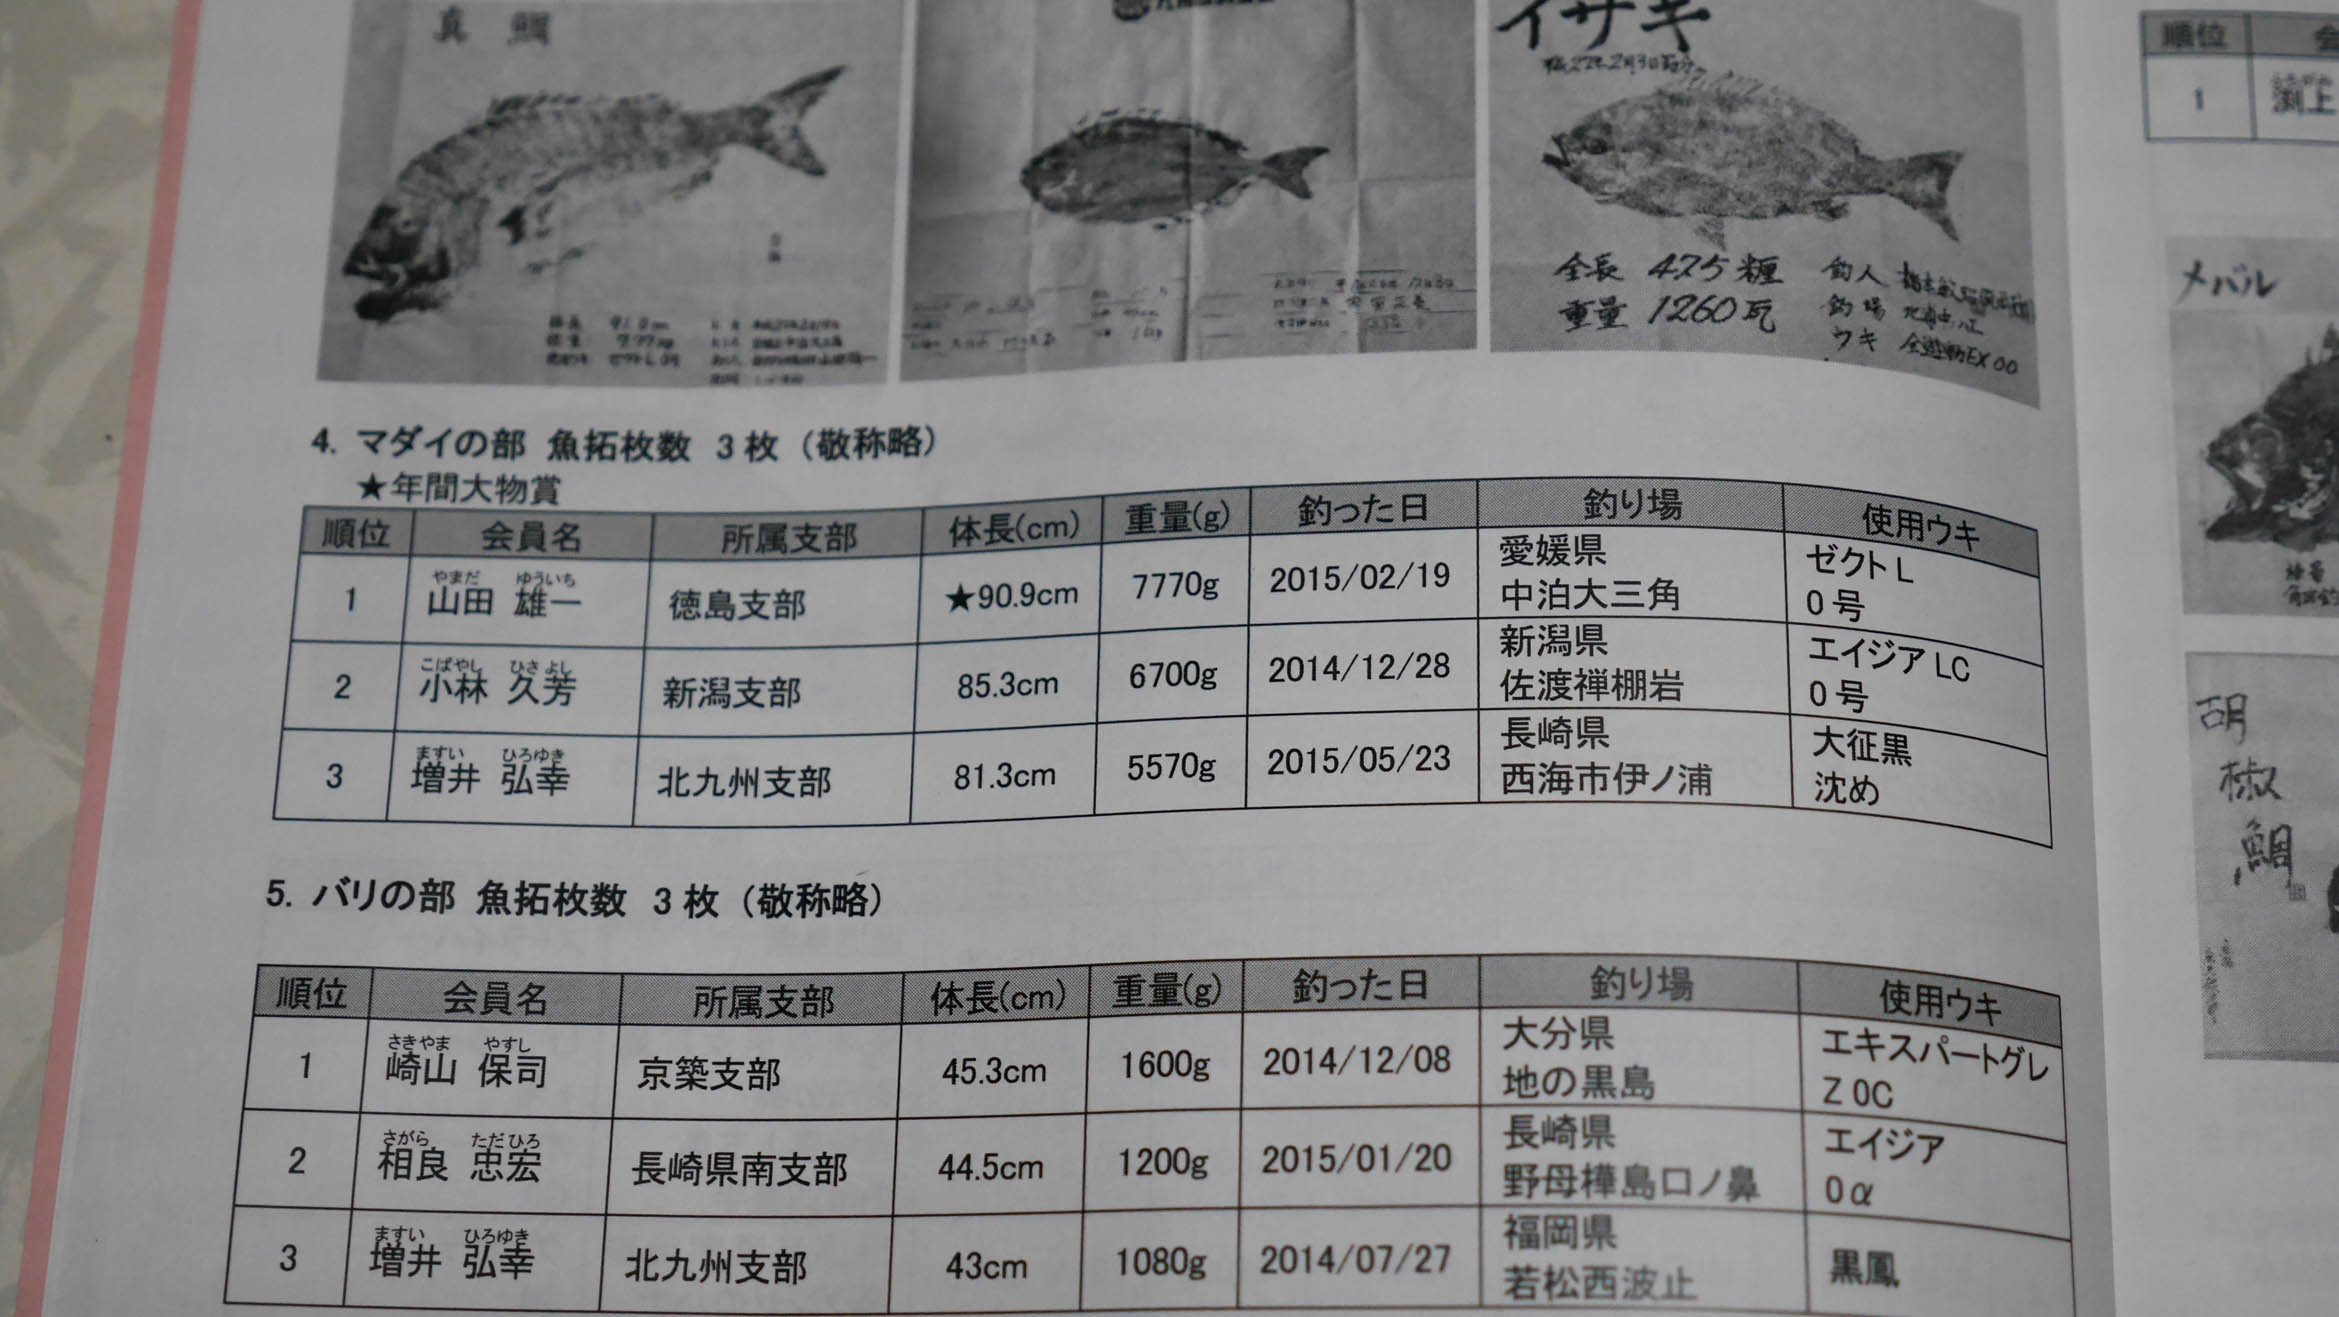 真 鯛
イサキ
全長 47.5 糎
重量 1260 瓦
釣人
釣場
ウキ 全遊動EX 00
4. マダイの部 魚拓枚数 3枚（敬称略）
★年間大物賞
順位 会員名 所属支部 体長(cm) 重量(g) 釣った日 釣り場 使用ウキ
やまだ ゆういち
1 山田 雄一 徳島支部 ★90.9cm 7770g 2015/02/19 愛媛県 中泊大三角 ゼクトL 0号
こばやし ひさよし
2 小林 久芳 新潟支部 85.3cm 6700g 2014/12/28 新潟県 佐渡禅棚岩 エイジアLC 0号
ますい ひろゆき
3 増井 弘幸 北九州支部 81.3cm 5570g 2015/05/23 長崎県 西海市伊ノ浦 大征黒 沈め
5. バリの部 魚拓枚数 3枚（敬称略）
順位 会員名 所属支部 体長(cm) 重量(g) 釣った日 釣り場 使用ウキ
さきやま やすし
1 崎山 保司 京築支部 45.3cm 1600g 2014/12/08 大分県 地の黒島 エキスパートグレ Z 0C
さがら ただひろ
2 相良 忠宏 長崎県南支部 44.5cm 1200g 2015/01/20 長崎県 野母樺島口ノ鼻 エイジア 0α
ますい ひろゆき
3 増井 弘幸 北九州支部 43cm 1080g 2014/07/27 福岡県 若松西波止 黒鳳
順位 会
1 渕上
メバル
胡椒鯛